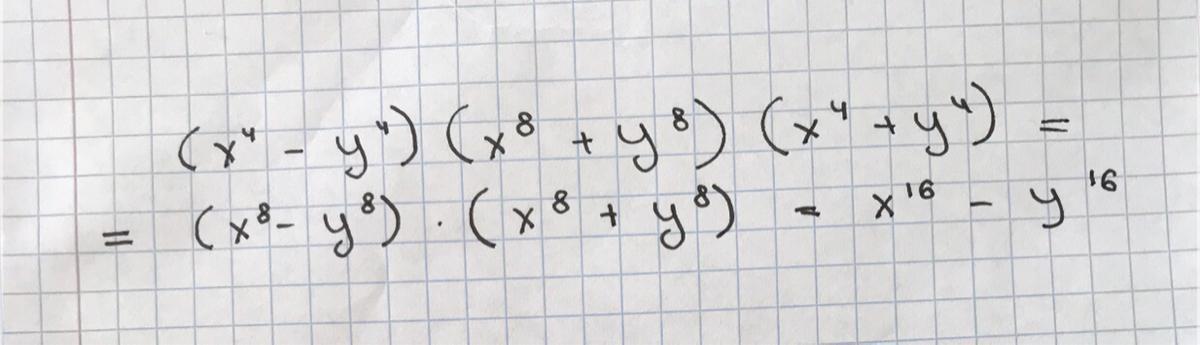 (x⁴ - y⁴) (x⁸ + y⁸) (x⁴ + y⁴) =
= (x⁸ - y⁸) · (x⁸ + y⁸) = x¹⁶ - y¹⁶